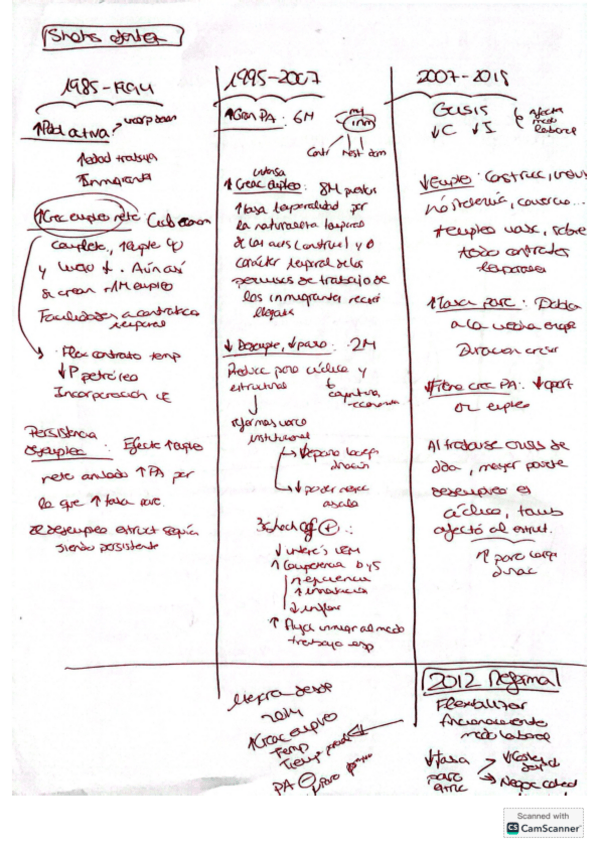 Shocks oferta
1985-1994
↑Pobl activa: incorp
↑edad trabaja
Inmigrante
↑Creac empleo neto
y luego ↓. Aún así
se crean +1M empleo
Facilidades a contratac
temporal
Flex contrato temp
↓P petróleo
Incorporación UE
Persistencia
desempleo: Efecto ↑empleo
neto anulado ↑PA por
lo que ↑tasa paro.
desempleo estruct seguía
siendo persistente
1995-2007
↑Gran PA: 6M
muj
inm
intensa
↑Creac empleo: 8M puestos
↑tasa temporalidad por
la naturaleza temporal
de las acts (construc) y o
carácter temporal de los
permisos de trabajo de
los inmigrantes recién
llegados
↓Desemple, ↓paro: 2M
Reduce paro cíclico y
estructural
coyuntura
economía
reformas marco
institucional
↓paro larga
duración
↓poder negoc
3 shock of (+):
↓interés UEM
↑Competencia b y s
↑eficiencia
↑innovación
↓inflac
↑flujo inmigr al mcdo
trabajo esp
2007-2019
Crisis
↓C ↓I
afecta
mcdo
laboral
↓Empleo: Construc, indus
hostelería, comercio...
sobre
todo contratos
temporales
↑Tasa paro: Dobla
a la media europ
Duración crisis
↓Ritmo crec PA: ↓oport
de empleo
Al tratarse crisis de
dda, mayor parte
desempleo es
cíclico, tamb
afectó al estruct.
↑ paro larga
durac
Mejora desde
2014
↑Creac empleo
Temp
PA (-)
2012 Reforma
Flexibilizar
funcionamiento
mcdo laboral
↓tasa
paro
estruc
↓Costes
despid
Negoc colect
Scanned with
CS CamScanner